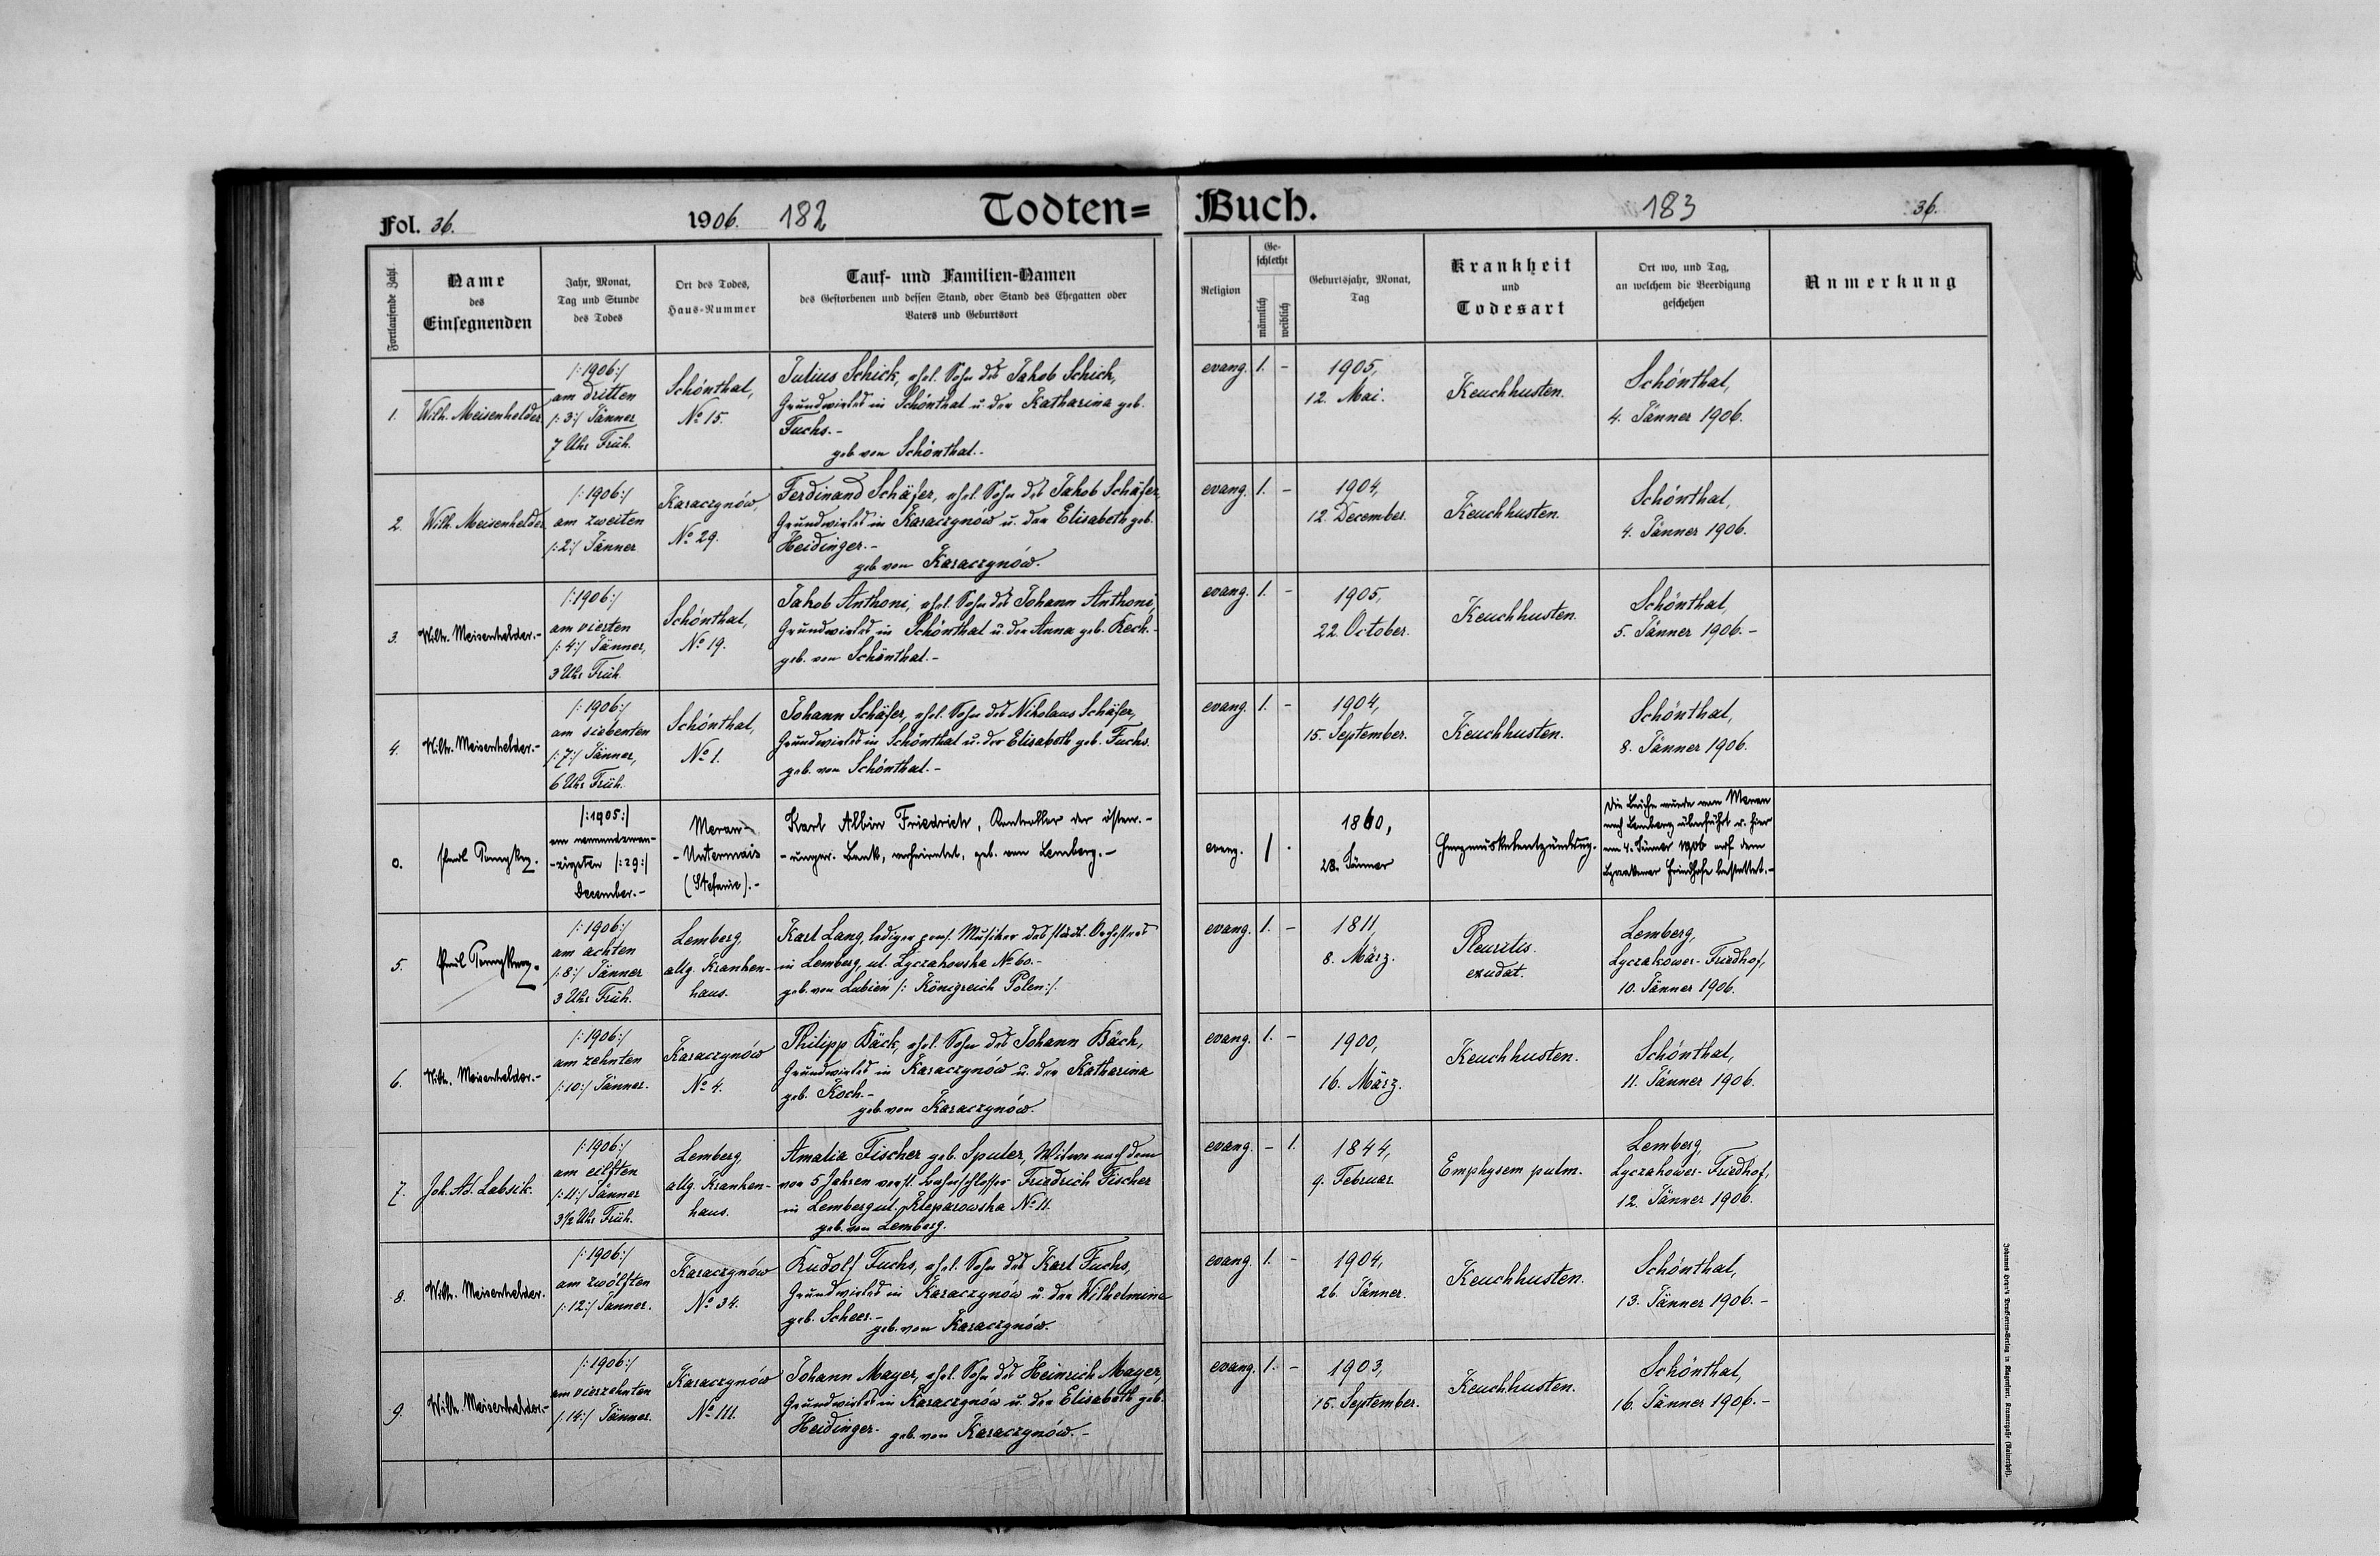 Fol. 36.
1906. 182
Todten=
Buch.
183
36.
Fortlaufende Zahl
Name
des
Einsegnenden
Jahr, Monat,
Tag und Stunde
des Todes
Ort des Todes,
Haus-Nummer
Tauf- und Familien-Namen
des Gestorbenen und dessen Stand, oder Stand des Ehegatten oder
Vaters und Geburtsort
Religion
Ge-
schlecht
männlich
weiblich
Geburtsjahr, Monat,
Tag
Krankheit
und
Todesart
Ort wo, und Tag,
an welchem die Beerdigung
geschehen
Anmerkung
1.
Wilh. Meisenhelder
/:1906:/
am dritten
/:3:/ Jänner
7 Uhr Früh.
Schönthal,
No 15.
Julius Schick, ehel. Sohn des Jakob Schick,
Grundwirtes in Schönthal u. der Katharina geb.
Fuchs.-
geb. von Schönthal.-
evang. 1. -
1905,
12. Mai.
Keuchhusten.
Schönthal,
4. Jänner 1906.
2.
Wilh. Meisenhelder
/:1906:/
am zweiten
/:2:/ Jänner
Karaczynów,
No 29.
Ferdinand Schäfer, ehel. Sohn des Jakob Schäfer,
Grundwirtes in Karaczynów u. der Elisabeth geb.
Heidinger.-
geb. von Karaczynów.
evang. 1. -
1904,
12. December.
Keuchhusten.
Schönthal,
4. Jänner 1906.
3.
Wilh. Meisenhelder.-
/:1906:/
am vierten
/:4:/ Jänner,
3 Uhr Früh.
Schönthal,
No 19.
Jakob Anthoni, ehel. Sohn des Johann Anthoni,
Grundwirtes in Schönthal u. der Anna geb. Kech.-
geb. von Schönthal.-
evang. 1. -
1905,
22. October.
Keuchhusten.
Schönthal,
5. Jänner 1906.-
4.
Wilh. Meisenhelder.-
/:1906:/
am siebenten
/:7:/ Jänner,
6 Uhr Früh.
Schönthal,
No 1.
Johann Schäfer, ehel. Sohn des Nikolaus Schäfer,
Grundwirtes in Schönthal u. der Elisabeth geb. Fuchs.
geb. von Schönthal.-
evang. 1. -
1904,
15. September.
Keuchhusten.
Schönthal,
8. Jänner 1906.
0.
/:1905:/
am neunundzwan-
-zigsten /:29:/
December.-
Meran-
-Untermais
(Stefanie).-
Karl Albin Friedrich, Kontrollor der österr.-
-ungar. Bank, verheiratet, geb. von Lemberg.-
evang. 1 .
1860,
23. Jänner
Herzmuskelentzündung.
Die Leiche wurde von Meran
nach Lemberg überführt u. hier
am 4. Jänner 1906 auf dem
Lyczakower Friedhofe bestattet.-
5.
/:1906:/
am achten
/:8:/ Jänner
3 Uhr Früh.
Lemberg,
allg. Kranken-
haus.
Karl Lang, lediger pens. Musiker des städt. Orchesters
in Lemberg, ul. Lyczakowska No 60.-
geb. von Lubien /: Königreich Polen:/.
evang. 1. -
1811,
8. März.
Pleuritis.
exudat.
Lemberg,
Lyczakower-Friedhof,
10. Jänner 1906.
6.
Wilh. Meisenhelder.-
/:1906:/
am zehnten
/:10:/ Jänner.
Karaczynów
No 4.
Philipp Bäck, ehel. Sohn des Johann Bäck,
Grundwirtes in Karaczynów u. der Katharina
geb. Koch.-
geb. von Karaczynów.
evang. 1. -
1900,
16. März.
Keuchhusten.
Schönthal,
11. Jänner 1906.
7.
Joh. Ad. Labsik.
/:1906:/
am eilften
/:11:/ Jänner
3 1/2 Uhr Früh.
Lemberg,
allg. Kranken-
haus.
Amalia Fischer geb. Sputer, Witwe nach dem
vor 5 Jahren verst. Friedrich Fischer
in Lemberg ul. Kleparowska No 11.
geb. von Lemberg.
evang. - 1.
1844,
9. Februar.
Emphysem pulm.
Lemberg,
Lyczakower-Friedhof,
12. Jänner 1906.
8.
Wilh. Meisenhelder.
/:1906:/
am zwölften
/:12:/ Jänner.
Karaczynów
No 34.
Rudolf Fuchs, ehel. Sohn des Karl Fuchs,
Grundwirtes in Karaczynów u. der Wilhelmine
geb. Scheer.-
geb. von Karaczynów.
evang. 1. -
1904,
26. Jänner.
Keuchhusten.
Schönthal,
13. Jänner 1906.-
9.
Wilh. Meisenhelder.-
/:1906:/
am vierzehnten
/:14:/ Jänner.
Karaczynów
No 111.
Johann Mayer, ehel. Sohn des Heinrich Mayer,
Grundwirtes in Karaczynów u. der Elisabeth geb.
Heidinger. geb. von Karaczynów.-
evang. 1. -
1903,
15. September.
Keuchhusten.
Schönthal,
16. Jänner 1906.-